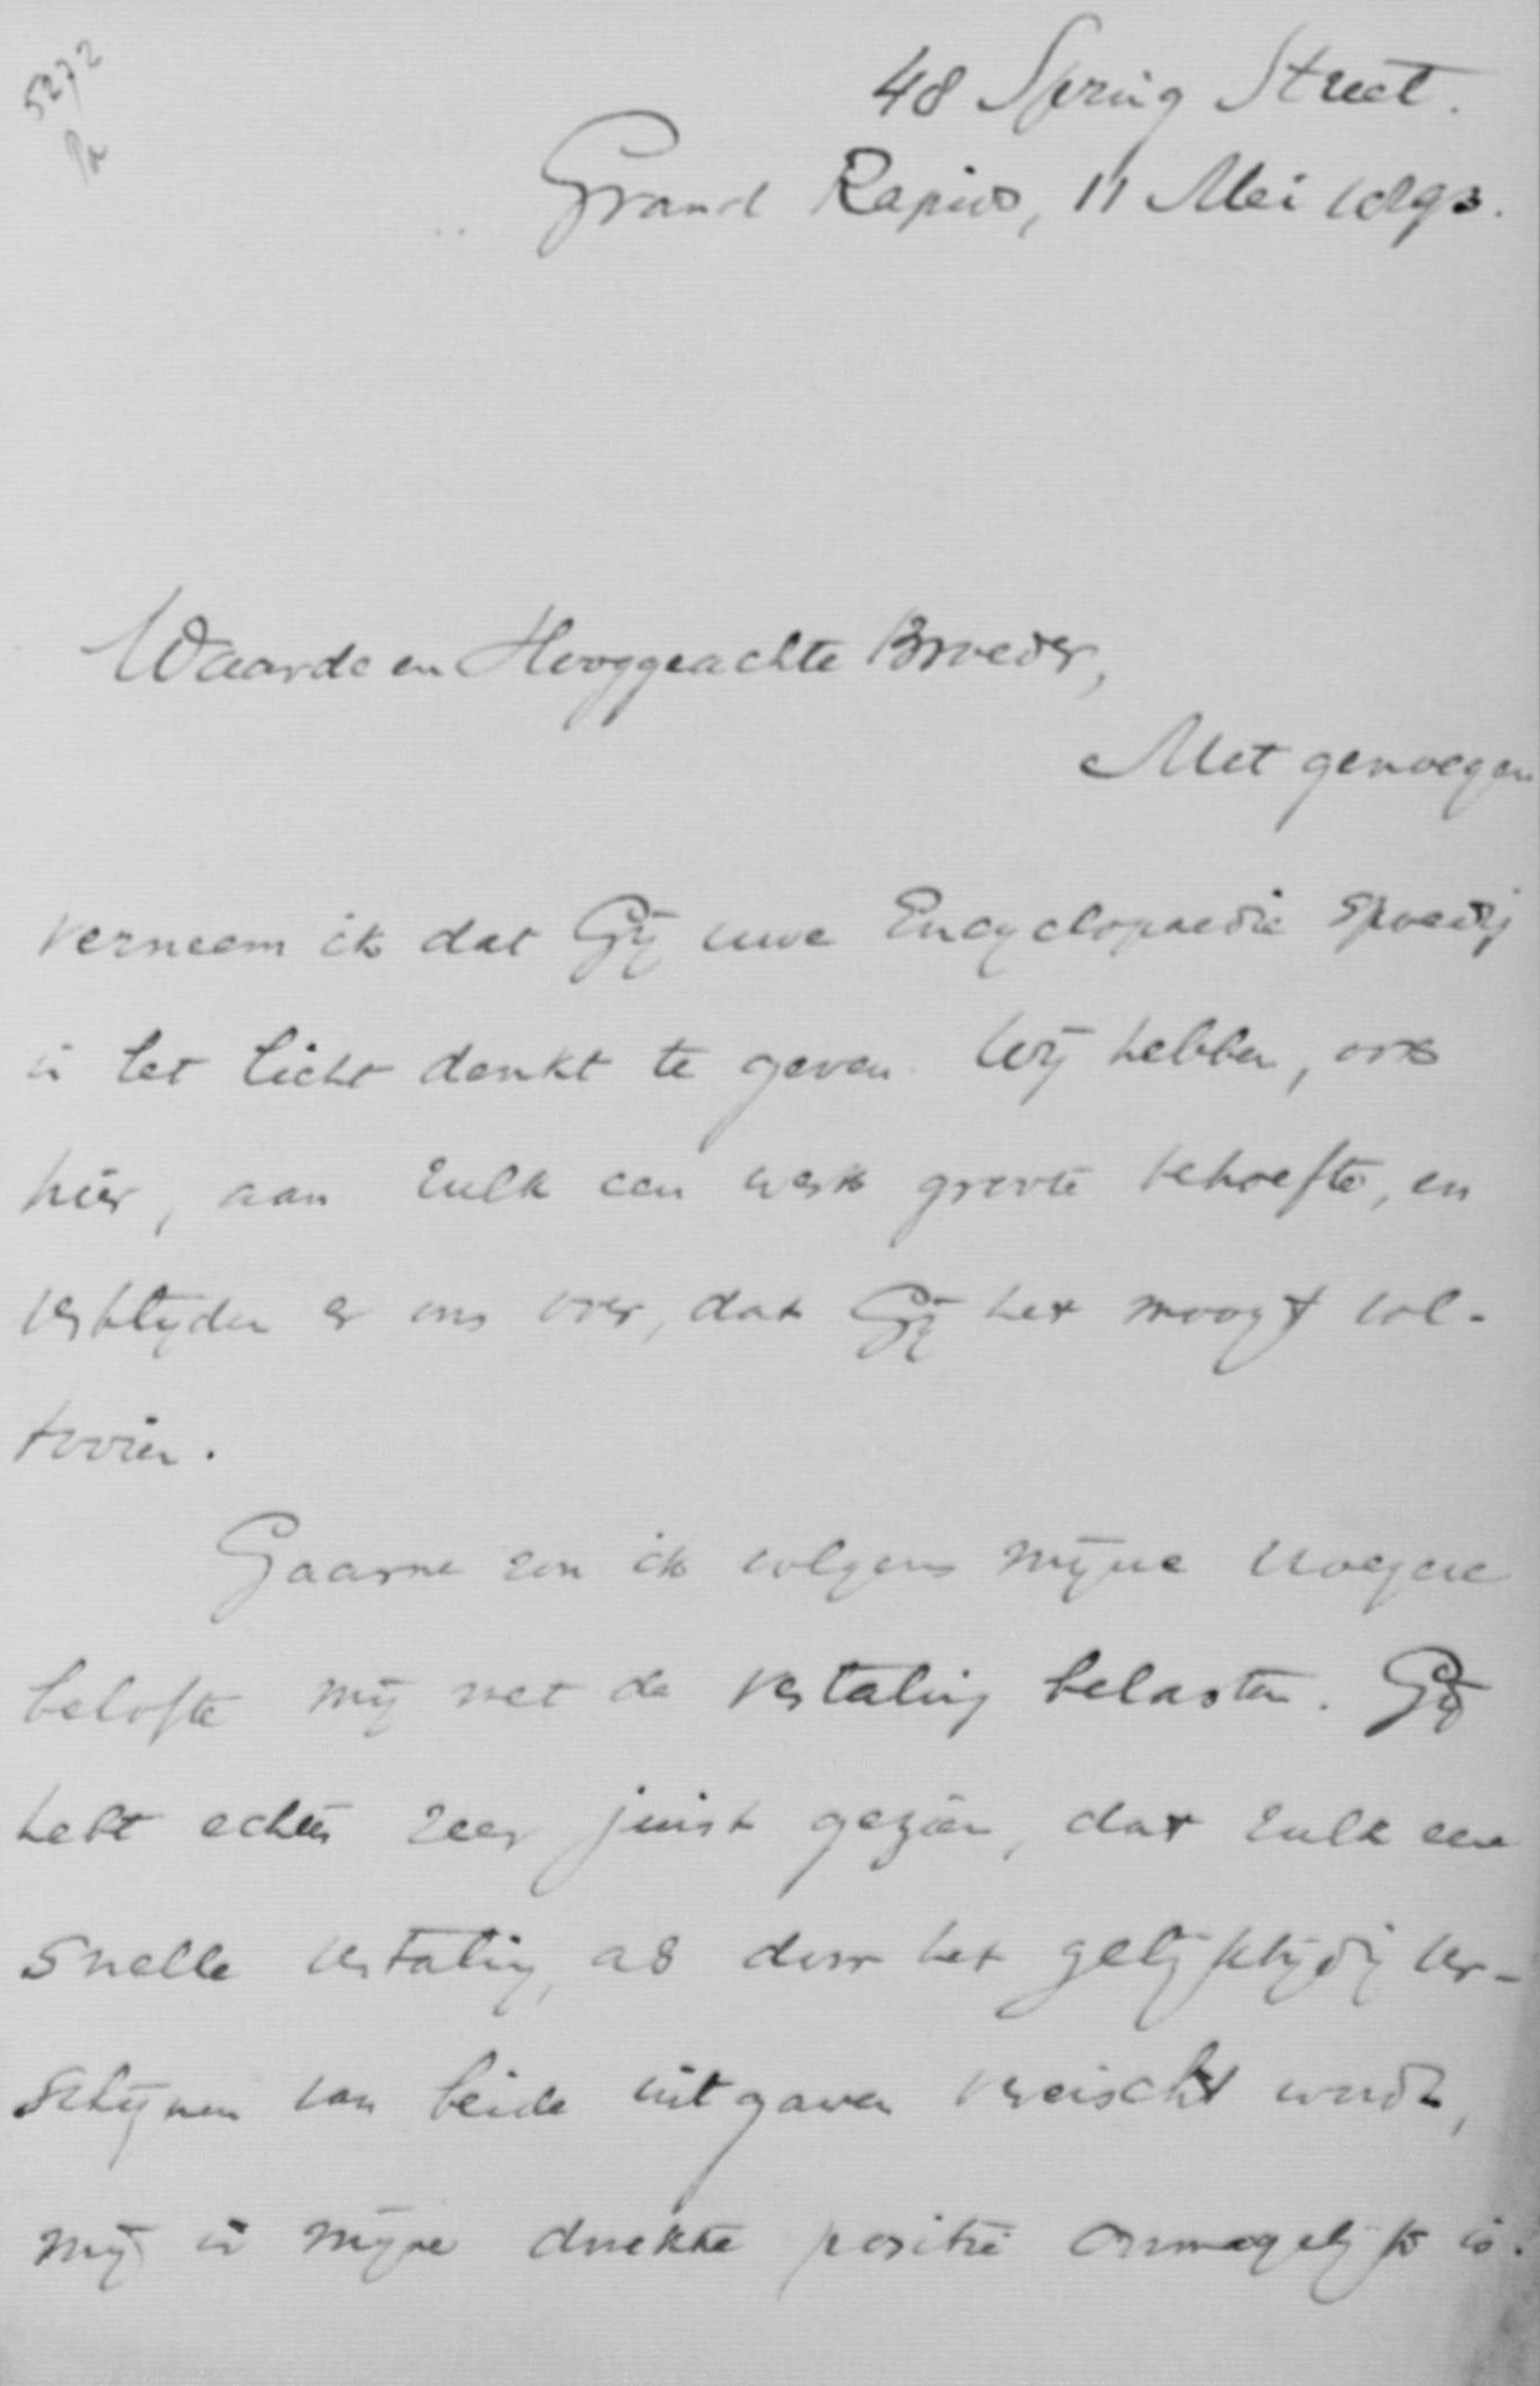 5272
48 Spring Street.
Grand Rapids, 11 Mei 1893.
Waarde en Hooggeachte Broeder,
Met genoegen
verneem ik dat Gij uwe Encyclopaedie spoedig
in het licht denkt te geven. Wij hebben, ook
hier, aan zulk een werk groote behoefte, en
verblijden er ons over, dat Gij het moogt vol-
tooien.
Gaarne zou ik volgens mijne vroegere
belofte mij met de vertaling belasten. Gij
hebt echter zeer juist gezien, dat zulk eene
snelle vertaling, als door het gelijktijdig ver-
schijnen van beide uitgaven vereischt wordt,
mij in mijne drukke positie onmogelijk is.